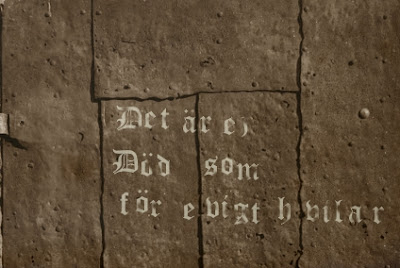 Det är ej
Död som
för evigt hvilar